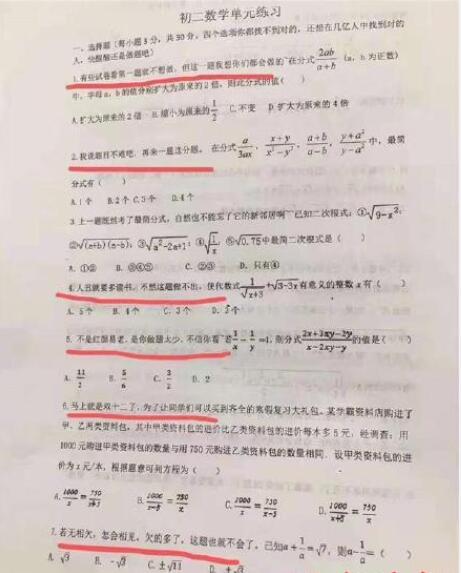 初二数学单元练习
一、选择题（每小题3分，共30分，四个选项你都找不到对的，还想在几亿人中找到对的
人，先醒醒还是做题吧）
1.有些试卷看第一题就不想做，但这一题我想你们都会做的 在分式 2ab/(a+b) (a，b为正数)
中，字母a，b的值分别扩大为原来的2倍，则此分式的值（ ）
A.扩大为原来的2倍 B.缩小为原来的 1/2 C.不变 D.扩大为原来的4倍
2.我说题目不难吧，再来一题送分题。 在分式 a/3ax，(x+y)/(x²-y²)，(a+b)/(a-b)，(y+a²)/(y-a²) 中，最简
分式有（ ）
A.1个 B.2个 C.3个 D.4个
3.上一题既然考了最简分式，自然也不能忘了它的新邻居啊 已知二次根式：①√(9-x²)；
②√((a+b)(a-b))；③√(a²-2a+1)；④√(1/x)；⑤√0.75 中最简二次根式是（ ）
A.①② B.③④⑤ C.②③ D.只有④
4.人丑就要多读书，不然这题做不出，使代数式 1/√(x+3) +√(3-3x) 有意义的整数x有（ ）
A.5个 B.4个 C.3个 D.5个
5.不是红颜易老，是你做题太少，不信你看 若 1/x - 1/y =4，则分式 (2x+3xy-2y)/(x-2xy-y) 的值是（ ）
A. 11/2 B. 5/6 C. 3/2 D. 2
6.马上就是双十二了，为了让同学们可以买到齐全的寒假复习大礼包，某学霸资料店购进了
甲、乙两类资料包，其中甲类资料包的进价比乙类资料包的进价每本多5元，经调查：用
1000元购进甲类资料包的数量与用750元购进乙类资料包的数量相同．设甲类资料包的进
价为x元/本，根据题意可列方程为（ ）
A. 1000/x = 750/x+5 B. 1000/x-5 = 750/x C. 1000/x = 750/x-5 D. 1000/x+5 = 750/x
7.若无相欠，怎会相见，欠的多了，这题也就不会了，已知a+ 1/a =√7，则a- 1/a =（ ）
A. √3 B. -√3 C. ±√11 D. ±√3